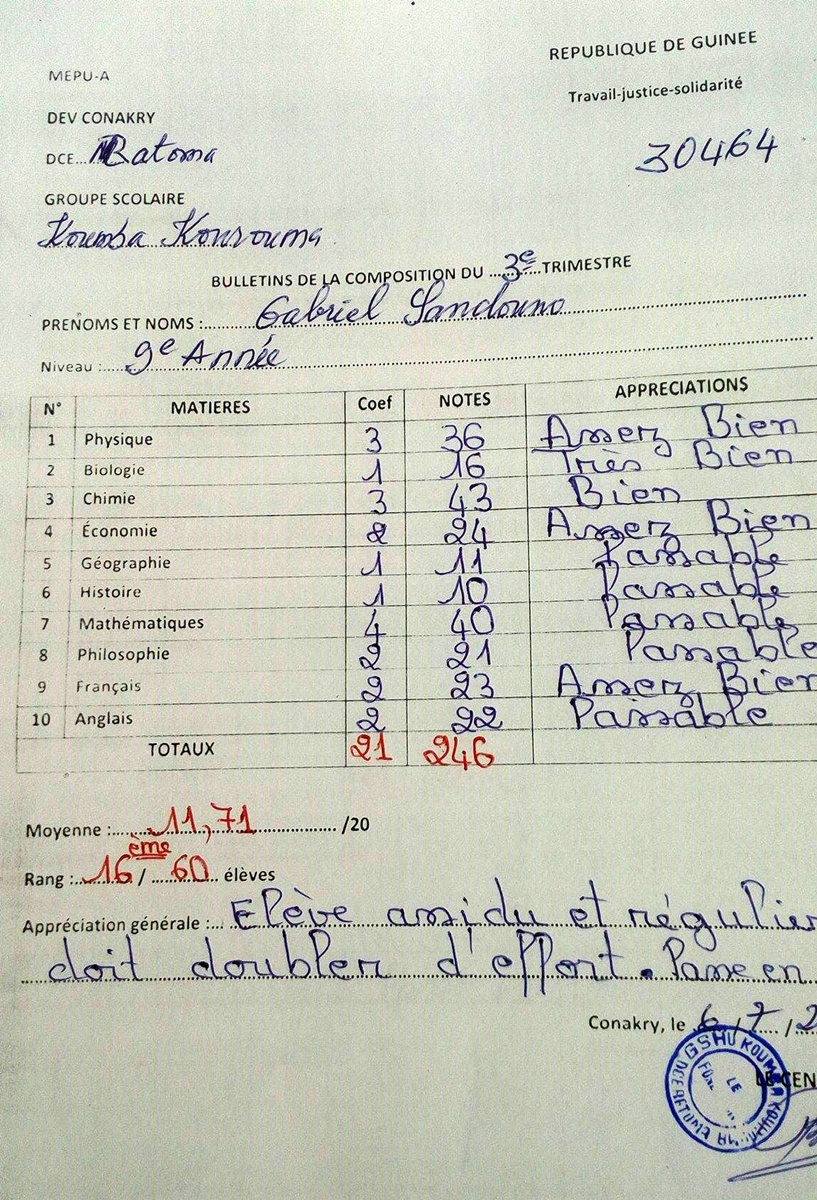 REPUBLIQUE DE GUINEE
MEPU-A
Travail-justice-solidarité
DEV CONAKRY
DCE... Ratoma
30464
GROUPE SCOLAIRE
Koumba Kourouma
BULLETINS DE LA COMPOSITION DU ...3e... TRIMESTRE
PRENOMS ET NOMS :... Gabriel Sandouno
Niveau :... 9e Année
N° MATIERES Coef NOTES APPRECIATIONS
1 Physique 3 36 Assez Bien
2 Biologie 1 16 Très Bien
3 Chimie 3 43 Bien
4 Économie 2 24 Assez Bien
5 Géographie 1 11 Passable
6 Histoire 1 10 Passable
7 Mathématiques 4 40 Passable
8 Philosophie 2 21 Passable
9 Français 2 23 Assez Bien
10 Anglais 2 22 Passable
TOTAUX 21 246
Moyenne :... 11,71 ... /20
Rang :... 16ème / ... 60 ... élèves
Appréciation générale :... Elève assidu et régulier
doit doubler d'effort. Passe en
Conakry, le 6 / 7 / 2
GSHU KOUMBA
DCE RATOMA
LE
LE CEN